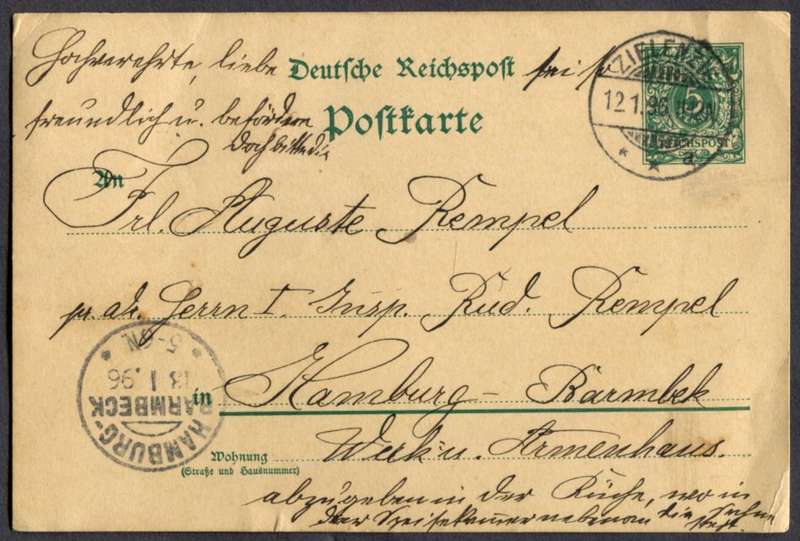 Hochverehrte, liebe
Deutsche Reichspost
sei so
freundlich u. befördere
Postkarte
doch bitte die
An
Frl. Auguste Rempel
pr. adr. Herrn I. Insp. Rud. Rempel
in Hamburg - Barmbek
Wohnung
(Straße und Hausnummer)
Werk u. Armenhaus.
abzugeben in der Küche, wo in
der Speisekammer nebenan die
ZIELENZIG
12.1.96
a
5
REICHSPOST
HAMBURG-
BARMBECK
13 1.96
5-6N.